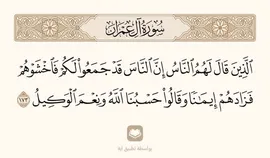 سُورَةُ آلِ عِمْرَان
الَّذِينَ قَالَ لَهُمُ النَّاسُ إِنَّ النَّاسَ قَدْ جَمَعُوا لَكُمْ فَاخْشَوْهُمْ
فَزَادَهُمْ إِيمَانًا وَقَالُوا حَسْبُنَا اللَّهُ وَنِعْمَ الْوَكِيلُ ١٧٣
بواسطة تطبيق آية